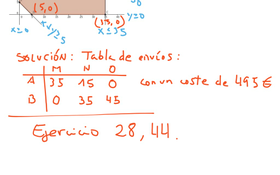 (15,0)
y≥0
(35,0)
x≥0
x+y≥5
x≤35
SOLUCIÓN: Tabla de envíos:
M N O
A 35 15 0 con un coste de 495 €
B 0 35 45
Ejercicio 28, 44.